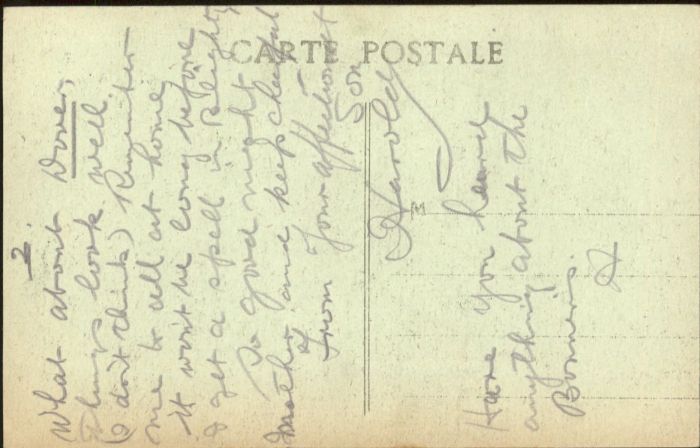 CARTE POSTALE
2.
What about Dover,
Things look well
(I don't think) Remember
me to all at home,
it won't be long before
I get a spell in Blighty
So good night
Mother and keep cheerful
From Your affectionate
Son
Harold
M
Have you heard
anything about the
H